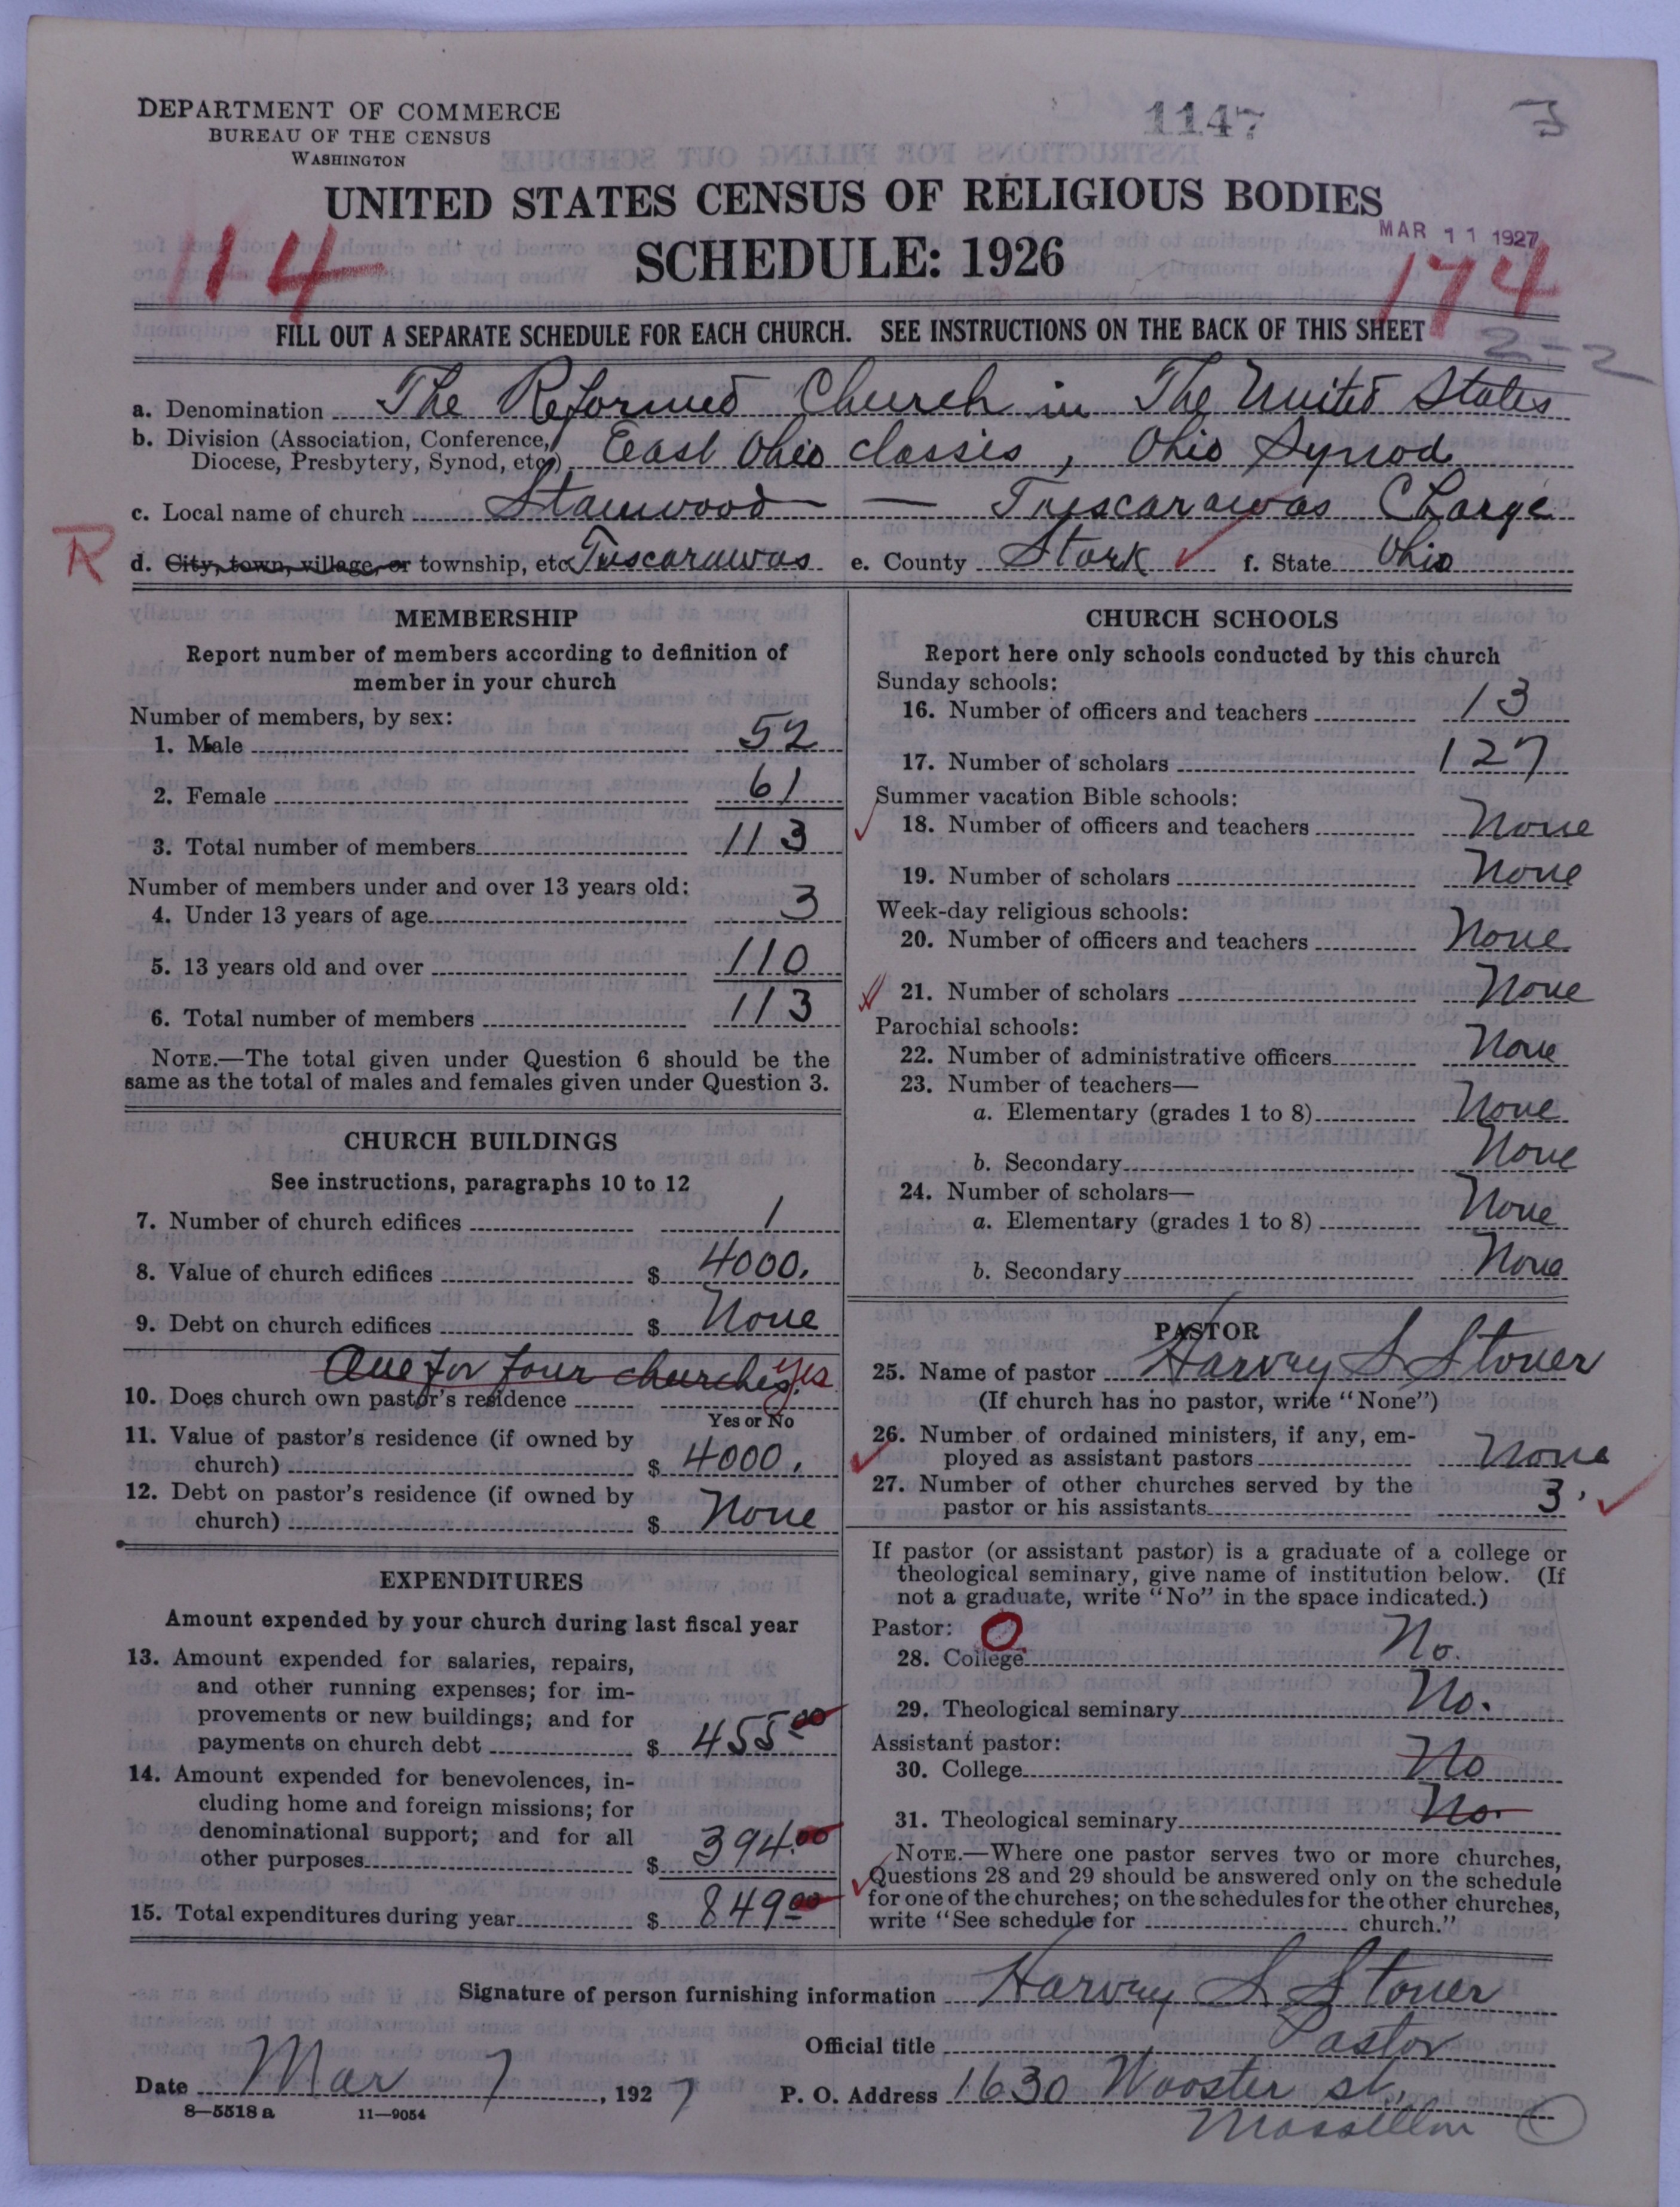 DEPARTMENT OF COMMERCE
BUREAU OF THE CENSUS
WASHINGTON
1147
UNITED STATES CENSUS OF RELIGIOUS BODIES
SCHEDULE: 1926
MAR 11 1927
114
174
FILL OUT A SEPARATE SCHEDULE FOR EACH CHURCH. SEE INSTRUCTIONS ON THE BACK OF THIS SHEET
2-2
a. Denomination The Reformed Church in The United States
b. Division (Association, Conference, Diocese, Presbytery, Synod, etc.) East Ohio classis, Ohio Synod
c. Local name of church Stanwood — Tuscarawas Charge
R
d. City, town, village, or township, etc. Tuscarawas e. County Stark f. State Ohio
MEMBERSHIP
Report number of members according to definition of
member in your church
Number of members, by sex:
1. Male 52
2. Female 61
3. Total number of members 113
Number of members under and over 13 years old:
4. Under 13 years of age 3
5. 13 years old and over 110
6. Total number of members 113
NOTE.—The total given under Question 6 should be the
same as the total of males and females given under Question 3.
CHURCH BUILDINGS
See instructions, paragraphs 10 to 12
7. Number of church edifices 1
8. Value of church edifices $ 4000.
9. Debt on church edifices $ None
One for four churches. yes
10. Does church own pastor's residence
Yes or No
11. Value of pastor's residence (if owned by
church) $ 4000.
12. Debt on pastor's residence (if owned by
church) $ None
EXPENDITURES
Amount expended by your church during last fiscal year
13. Amount expended for salaries, repairs,
and other running expenses; for im-
provements or new buildings; and for
payments on church debt $ 455.00
14. Amount expended for benevolences, in-
cluding home and foreign missions; for
denominational support; and for all
other purposes $ 394.00
15. Total expenditures during year $ 849.00
CHURCH SCHOOLS
Report here only schools conducted by this church
Sunday schools:
16. Number of officers and teachers 13
17. Number of scholars 127
Summer vacation Bible schools:
18. Number of officers and teachers None
19. Number of scholars None
Week-day religious schools:
20. Number of officers and teachers None
21. Number of scholars None
Parochial schools:
22. Number of administrative officers None
23. Number of teachers—
a. Elementary (grades 1 to 8) None
b. Secondary None
24. Number of scholars—
a. Elementary (grades 1 to 8) None
b. Secondary None
PASTOR
25. Name of pastor Harvey S Stoner
(If church has no pastor, write "None")
26. Number of ordained ministers, if any, em-
ployed as assistant pastors None
27. Number of other churches served by the
pastor or his assistants 3.
If pastor (or assistant pastor) is a graduate of a college or
theological seminary, give name of institution below. (If
not a graduate, write "No" in the space indicated.)
Pastor: O
28. College No.
29. Theological seminary No.
Assistant pastor:
30. College No
31. Theological seminary No.
NOTE.—Where one pastor serves two or more churches,
Questions 28 and 29 should be answered only on the schedule
for one of the churches; on the schedules for the other churches,
write "See schedule for church."
Signature of person furnishing information Harvey S Stoner
Official title Pastor
Date Mar 7, 1927 P. O. Address 1630 Wooster st.,
8—5518 a 11—9054
Massillon O